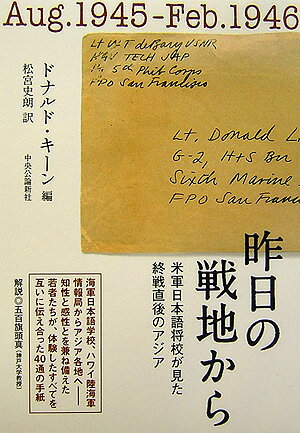 Aug.1945-Feb.1946
Lt WT deBary USNR
Nav TECH JAP
℅ 5th Phib Corps
FPO San Francisco
Lt. Donald
G-2, H+S Bn
Sixth Marine
FPO San Franc
昨日の
戦地から
米軍日本語将校が見た
終戦直後のアジア
ドナルド・キーン 編
松宮史朗 訳
中央公論新社
海軍日本語学校、ハワイ陸海軍
情報局からアジア各地へ――
知性と感性とを兼ね備えた
若者たちが、体験したすべてを
互いに伝え合った40通の手紙
解説◎五百旗頭真(神戸大学教授)